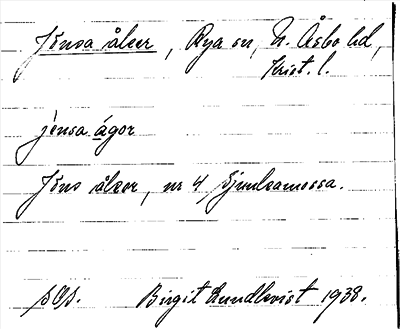 Jönsa åker, Rya sn, N. Åsbo hd,
Krist. l.
jönsa ågor
Jöns åkrar, nr 4 Ljunkamossa.
SGS. Birgit Lundkvist 1938.